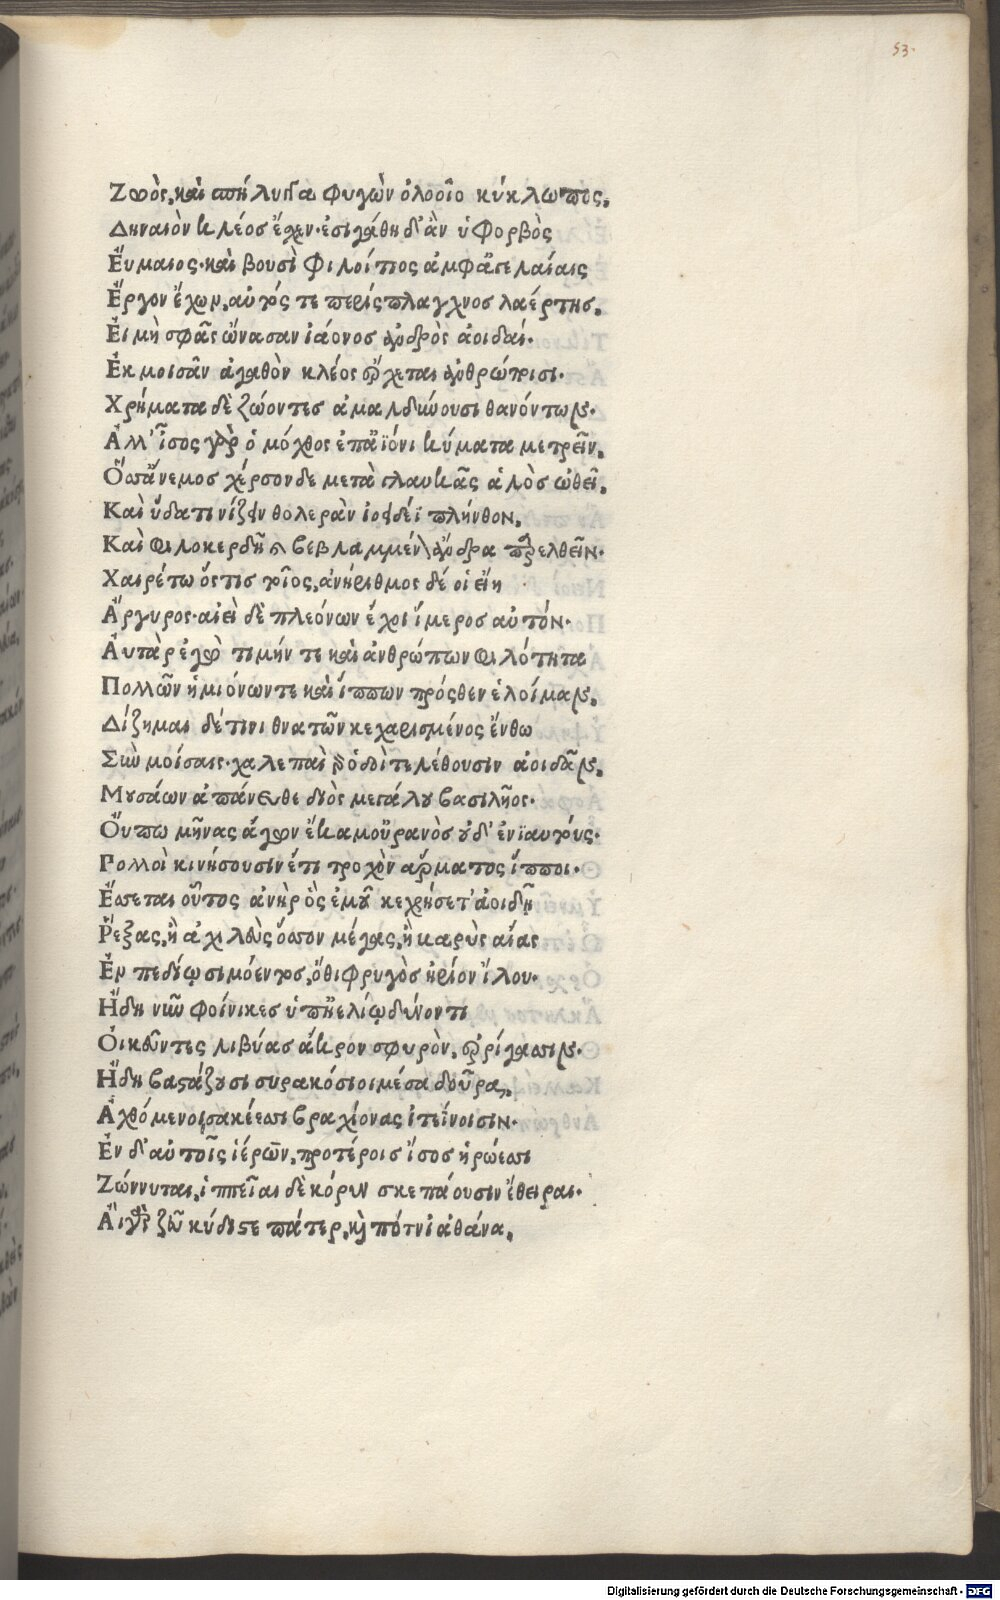 53.
Ζωὸς, καὶ σπήλυγγα φυγὼν ὀλοοῖο κύκλωπος,
Δηναιὸν κλέος ἔσχεν· ἐσιγάθη δ' ἂν ὑφορβὸς
Εὔμαιος· καὶ βουσὶ φιλοίτιος ἀμφ' ἀγελαίαις
Ἔργον ἔχων, αὐτός τε περίσπλαγχνος λαέρτης,
Εἰ μὴ σφᾶς ὤνασαν ἰάονος ἀνδρὸς ἀοιδαί.
Ἐκ μοισᾶν ἀγαθὸν κλέος ἔρχεται ἀνθρώποισι.
Χρήματα δὲ ζώοντες ἀμαλδύνουσι θανόντων.
Ἀλλ' ἶσος γὰρ ὁ μόχθος ἐπ' ἀϊόνι κύματα μετρεῖν,
Ὅσσ' ἄνεμος χέρσονδε μετὰ γλαυκᾶς ἁλὸς ὠθεῖ,
Καὶ ὕδατι νίζειν θολερὰν ἰοειδέϊ πλήνθον,
Καὶ φιλοκερδῆ βεβλαμμένον ἄνδρα παρελθεῖν.
Χαιρέτω ὅστις τοῖος, ἀνήριθμος δέ οἱ εἴη
Ἄργυρος· αἰεὶ δὲ πλεόνων ἔχοι ἵμερος αὐτόν.
Αὐτὰρ ἐγὼ τιμήν τε καὶ ἀνθρώπων φιλότητα
Πολλῶν ἡμιόνων τε καὶ ἵππων πρόσθεν ἑλοίμαν,
Δίζημαι δέ τινι θνατῶν κεχαρισμένος ἔνθω
Σὺν μοίσαις· χαλεπαὶ γὰρ ὁδοὶ τελέθουσιν ἀοιδᾶν,
Μουσάων ἀπάνευθε διὸς μεγάλου βασιλῆος.
Οὔπω μῆνας ἄγων ἔκαμ' οὐρανὸς οὐδ' ἐνϊαυτούς.
Πολλοὶ κινήσουσιν ἔτι τροχὸν ἅρματος ἵπποι.
Ἔσσεται οὗτος ἀνὴρ ὃς ἐμοῦ κεχρήσετ' ἀοιδῇ
Ῥέξας, ἢ ἀχιλλεὺς ὅσσον μέγας, ἢ βαρὺς αἴας
Ἐν πεδίῳ σιμόεντος, ὅθι φρυγὸς ἠρίον ἴλου.
Ἤδη νῦν φοίνικες ὑπ' ἠελίῳ δύνοντι
Οἰκεῦντες λιβύας ἄκρον σφυρὸν, ἐρρίγασιν.
Ἤδη βαστάζουσι συρακόσιοι μέσα δοῦρα,
Ἀχθόμενοι σακέεσσι βραχίονας ἰτεΐνοισιν.
Ἐν δ' αὐτοῖς ἱέρων, προτέροις ἴσος ἡρώεσσι
Ζώννυται, ἱππεῖαι δὲ κόρυν σκεπάουσιν ἔθειραι.
Αἲ γὰρ ζεῦ κύδιστε πάτερ, καὶ πότνι' ἀθάνα,
Digitalisierung gefördert durch die Deutsche Forschungsgemeinschaft - DFG